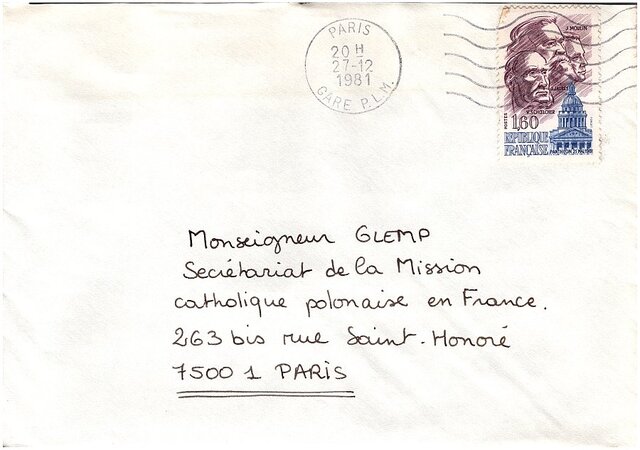 PARIS
20 H
27-12
1981
GARE P.L.M.
J. MOULIN
J. JAURÈS
V. SCHŒLCHER
POSTES
1,60
REPUBLIQUE
FRANÇAISE
PANTHEON 21 MAI 1981
Monseigneur GLEMP
Secrétariat de la Mission
catholique polonaise en France.
263 bis rue Saint-Honoré
75001 PARIS